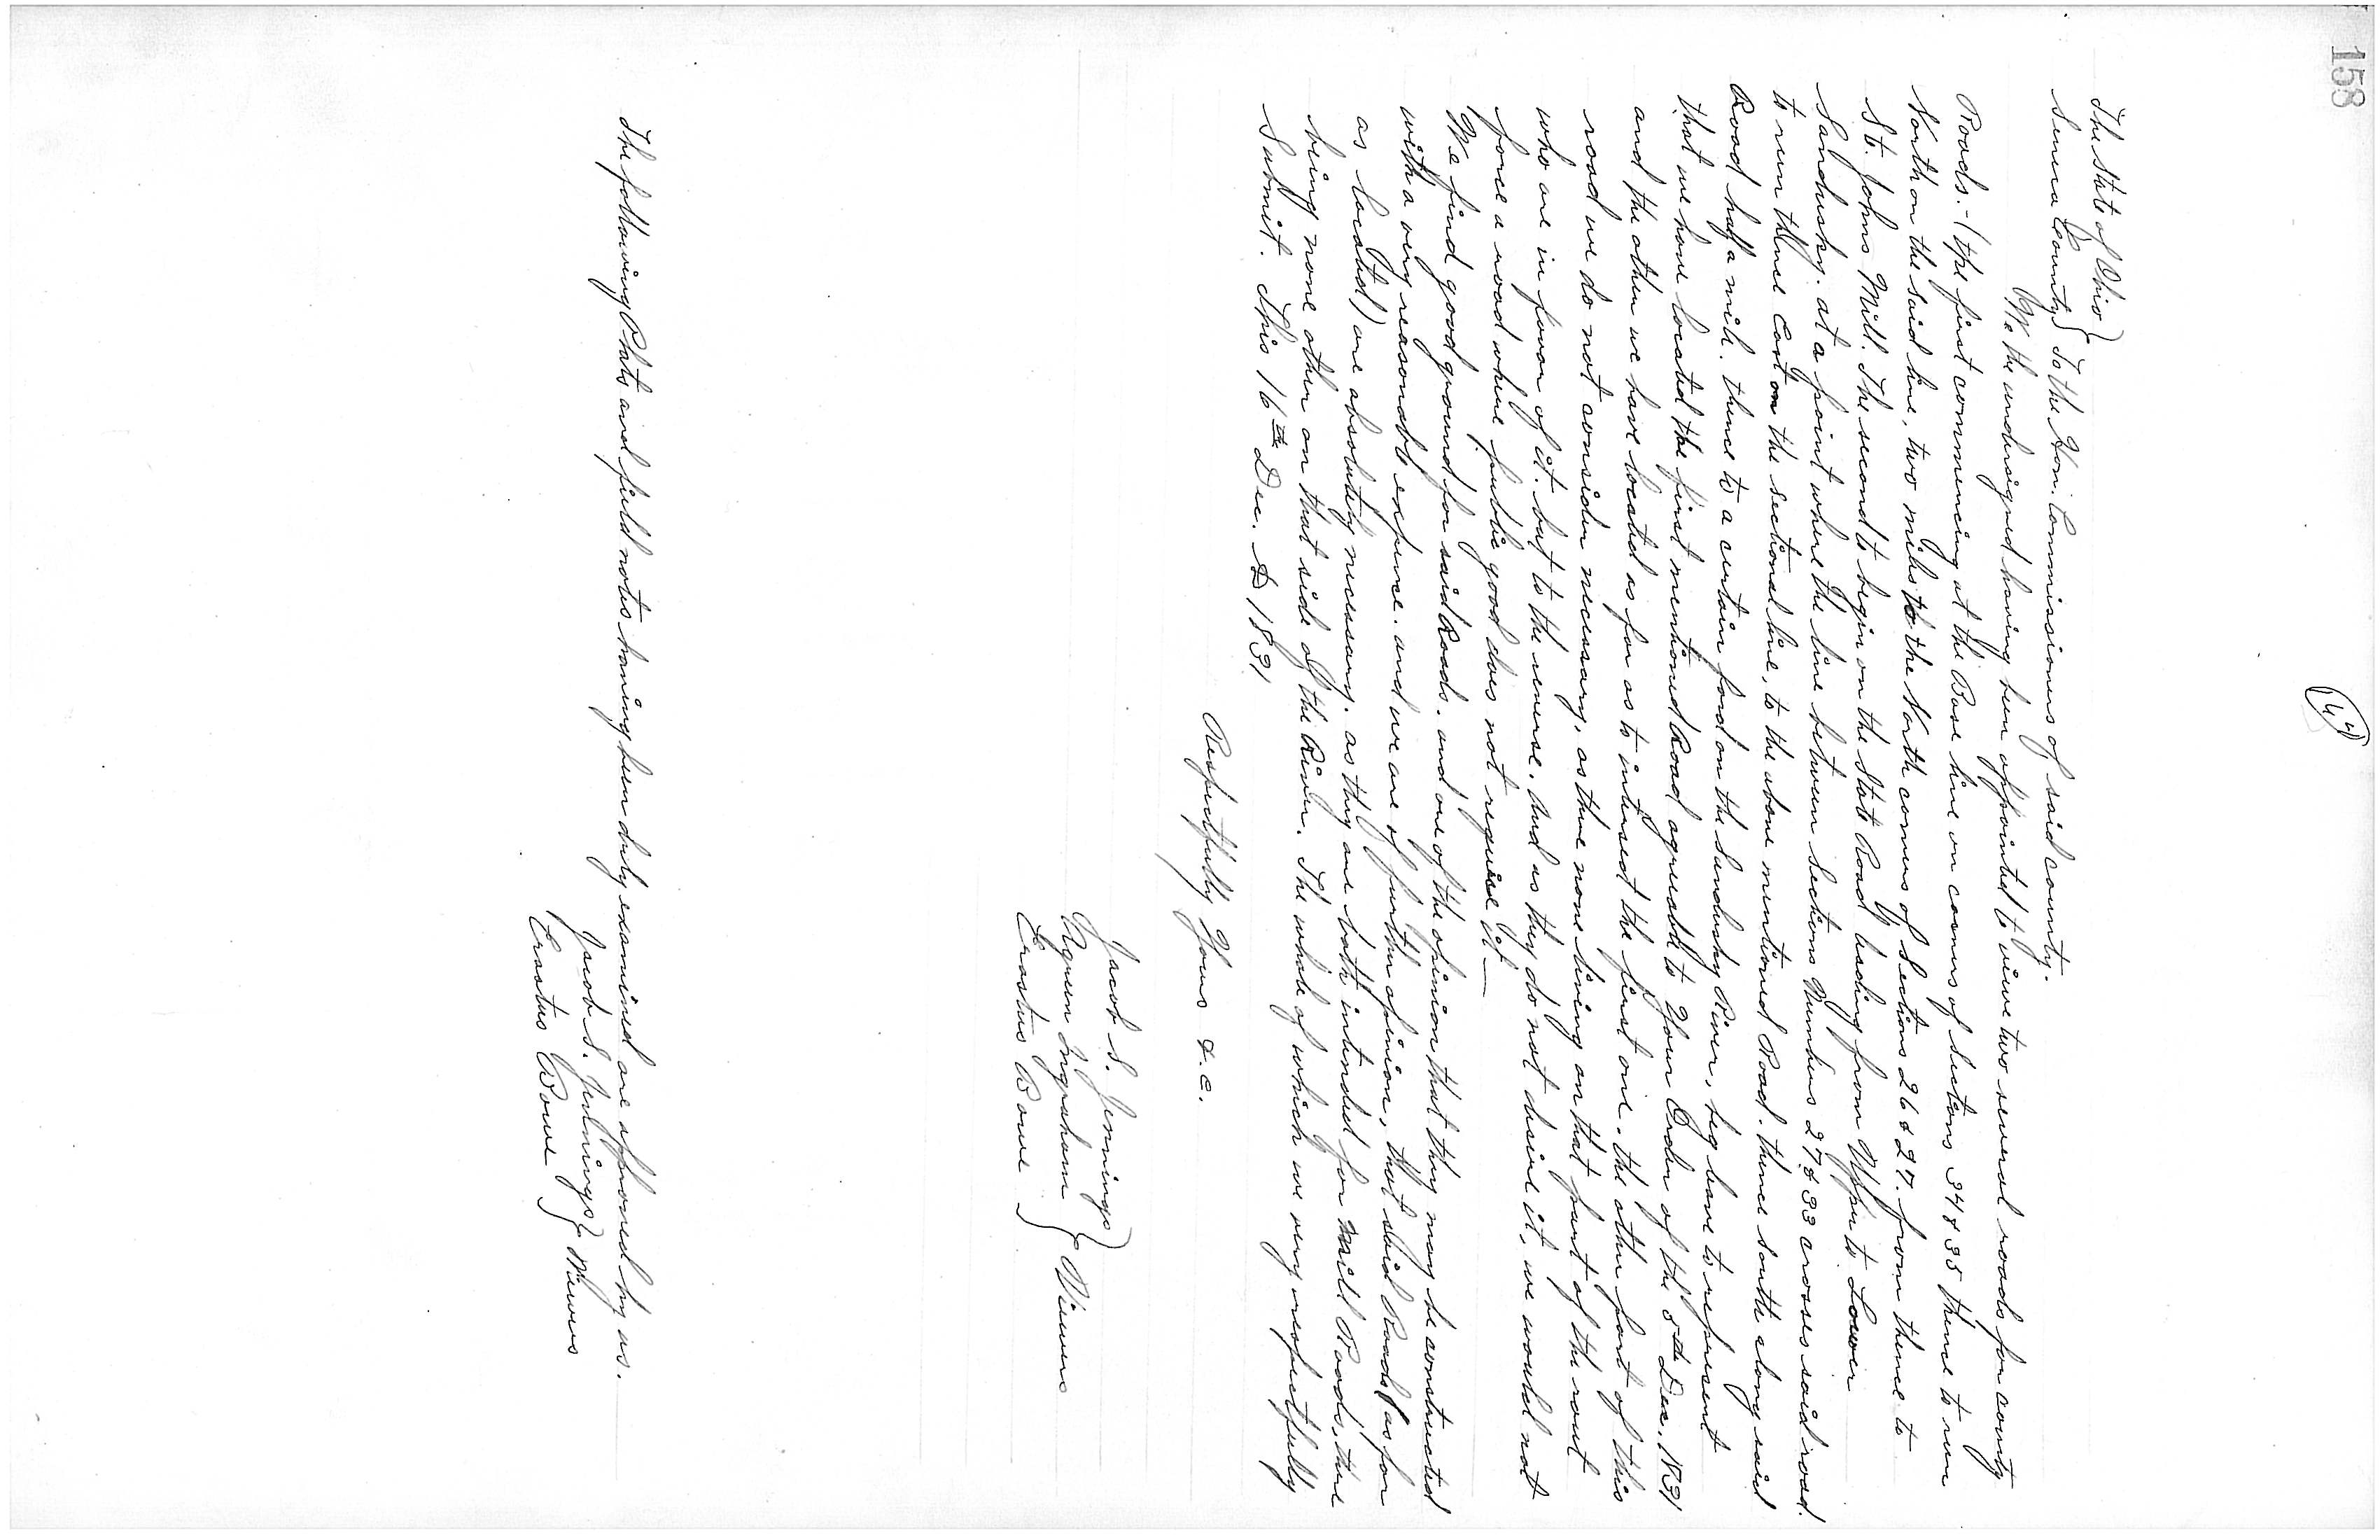 158
44
The State of Ohio }
Seneca County } To the Hon. Commissioners of said county.
We the undersigned having been appointed to view two several roads for county
Roads. - (the first commencing at the Base line on corners of Sections 34 & 35 thence to run
North on the said line, two miles to the North corners of Sections 26 & 27. from thence to
St. Johns Mill. The second to begin on the State Road leading from Upper to Lower
Sandusky. at a point where the line between Sections Numbers 27 & 33 crosses said road.
to run thence East on the sectional line, to the above mentioned Road. thence south along said
Road half a mile. thence to a certain ford on the Sandusky River, beg leave to represent
that we have located the first mentioned Road agreeable to Your Order of the 5th Dec. 1831
and the other we have located as far as to intersect the first one. the other part of this
road we do not consider necessary, as there none living on that part of the rout
who are in favor of it. but to the reverse. And as they do not desire it, we would not
force a road where public good does not require it —
We find good ground for said Roads. and are of the opinion that they may be constructed
with a very reasonable expense. and we are of further opinion, that said Roads (as far
as located) are absolutely necessary. as they are both intended for Mill Roads, there
being none other on that side of the River. The whole of which we very respectfully
Submit. This 16th Dec. AD 1831
Respectfully Yours &.c.
Jacob S. Jennings }
Agreen Ingraham } Viewers
Erastus Bowe }
The following Plats and field notes having been duly examined are approved by us.
Jacob S. Jennings }
Erastus Bowe } Viewers